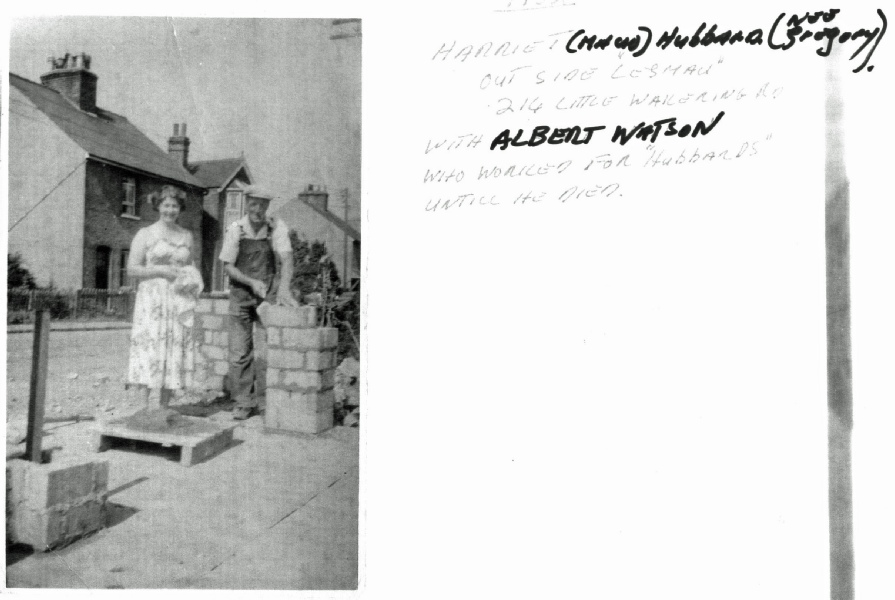 HARRIET (MAUD) Hubbard (NEE Gregory).
OUT SIDE "LESMAU"
214 LITTLE WAKERING RD
WITH ALBERT WATSON
WHO WORKED FOR "HUBBARDS"
UNTILL HE DIED.